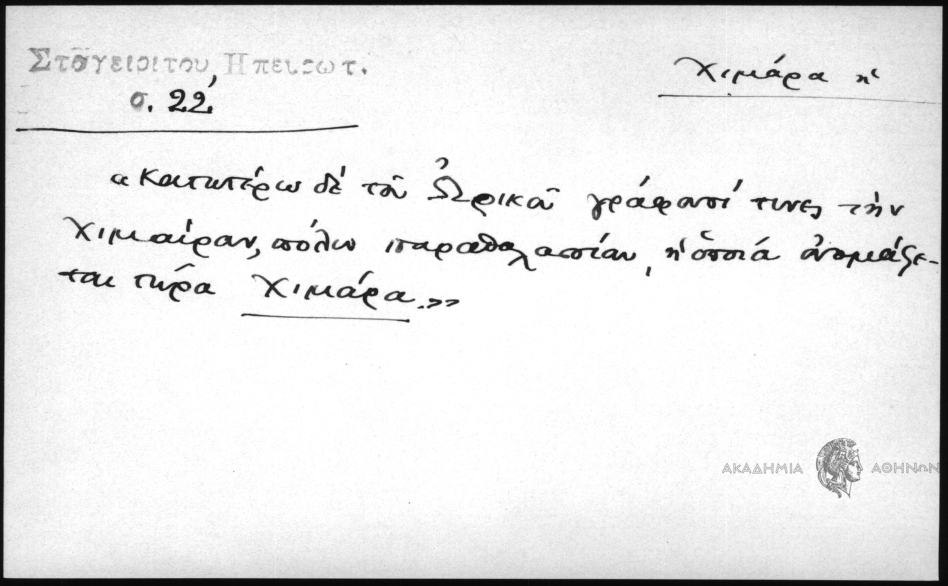 Σταγειρίτου, Ηπειρωτ.
σ. 22,
Χιμάρα ἡ
«Κατωτέρω δὲ τοῦ Ὠρικοῦ γράφουσί τινες τὴν
Χίμαιραν, πόλιν παραθαλασσίαν, ἡ ὁποία ὀνομάζε-
ται τώρα Χιμάρα.»
ΑΚΑΔΗΜΙΑ ΑΘΗΝΩΝ